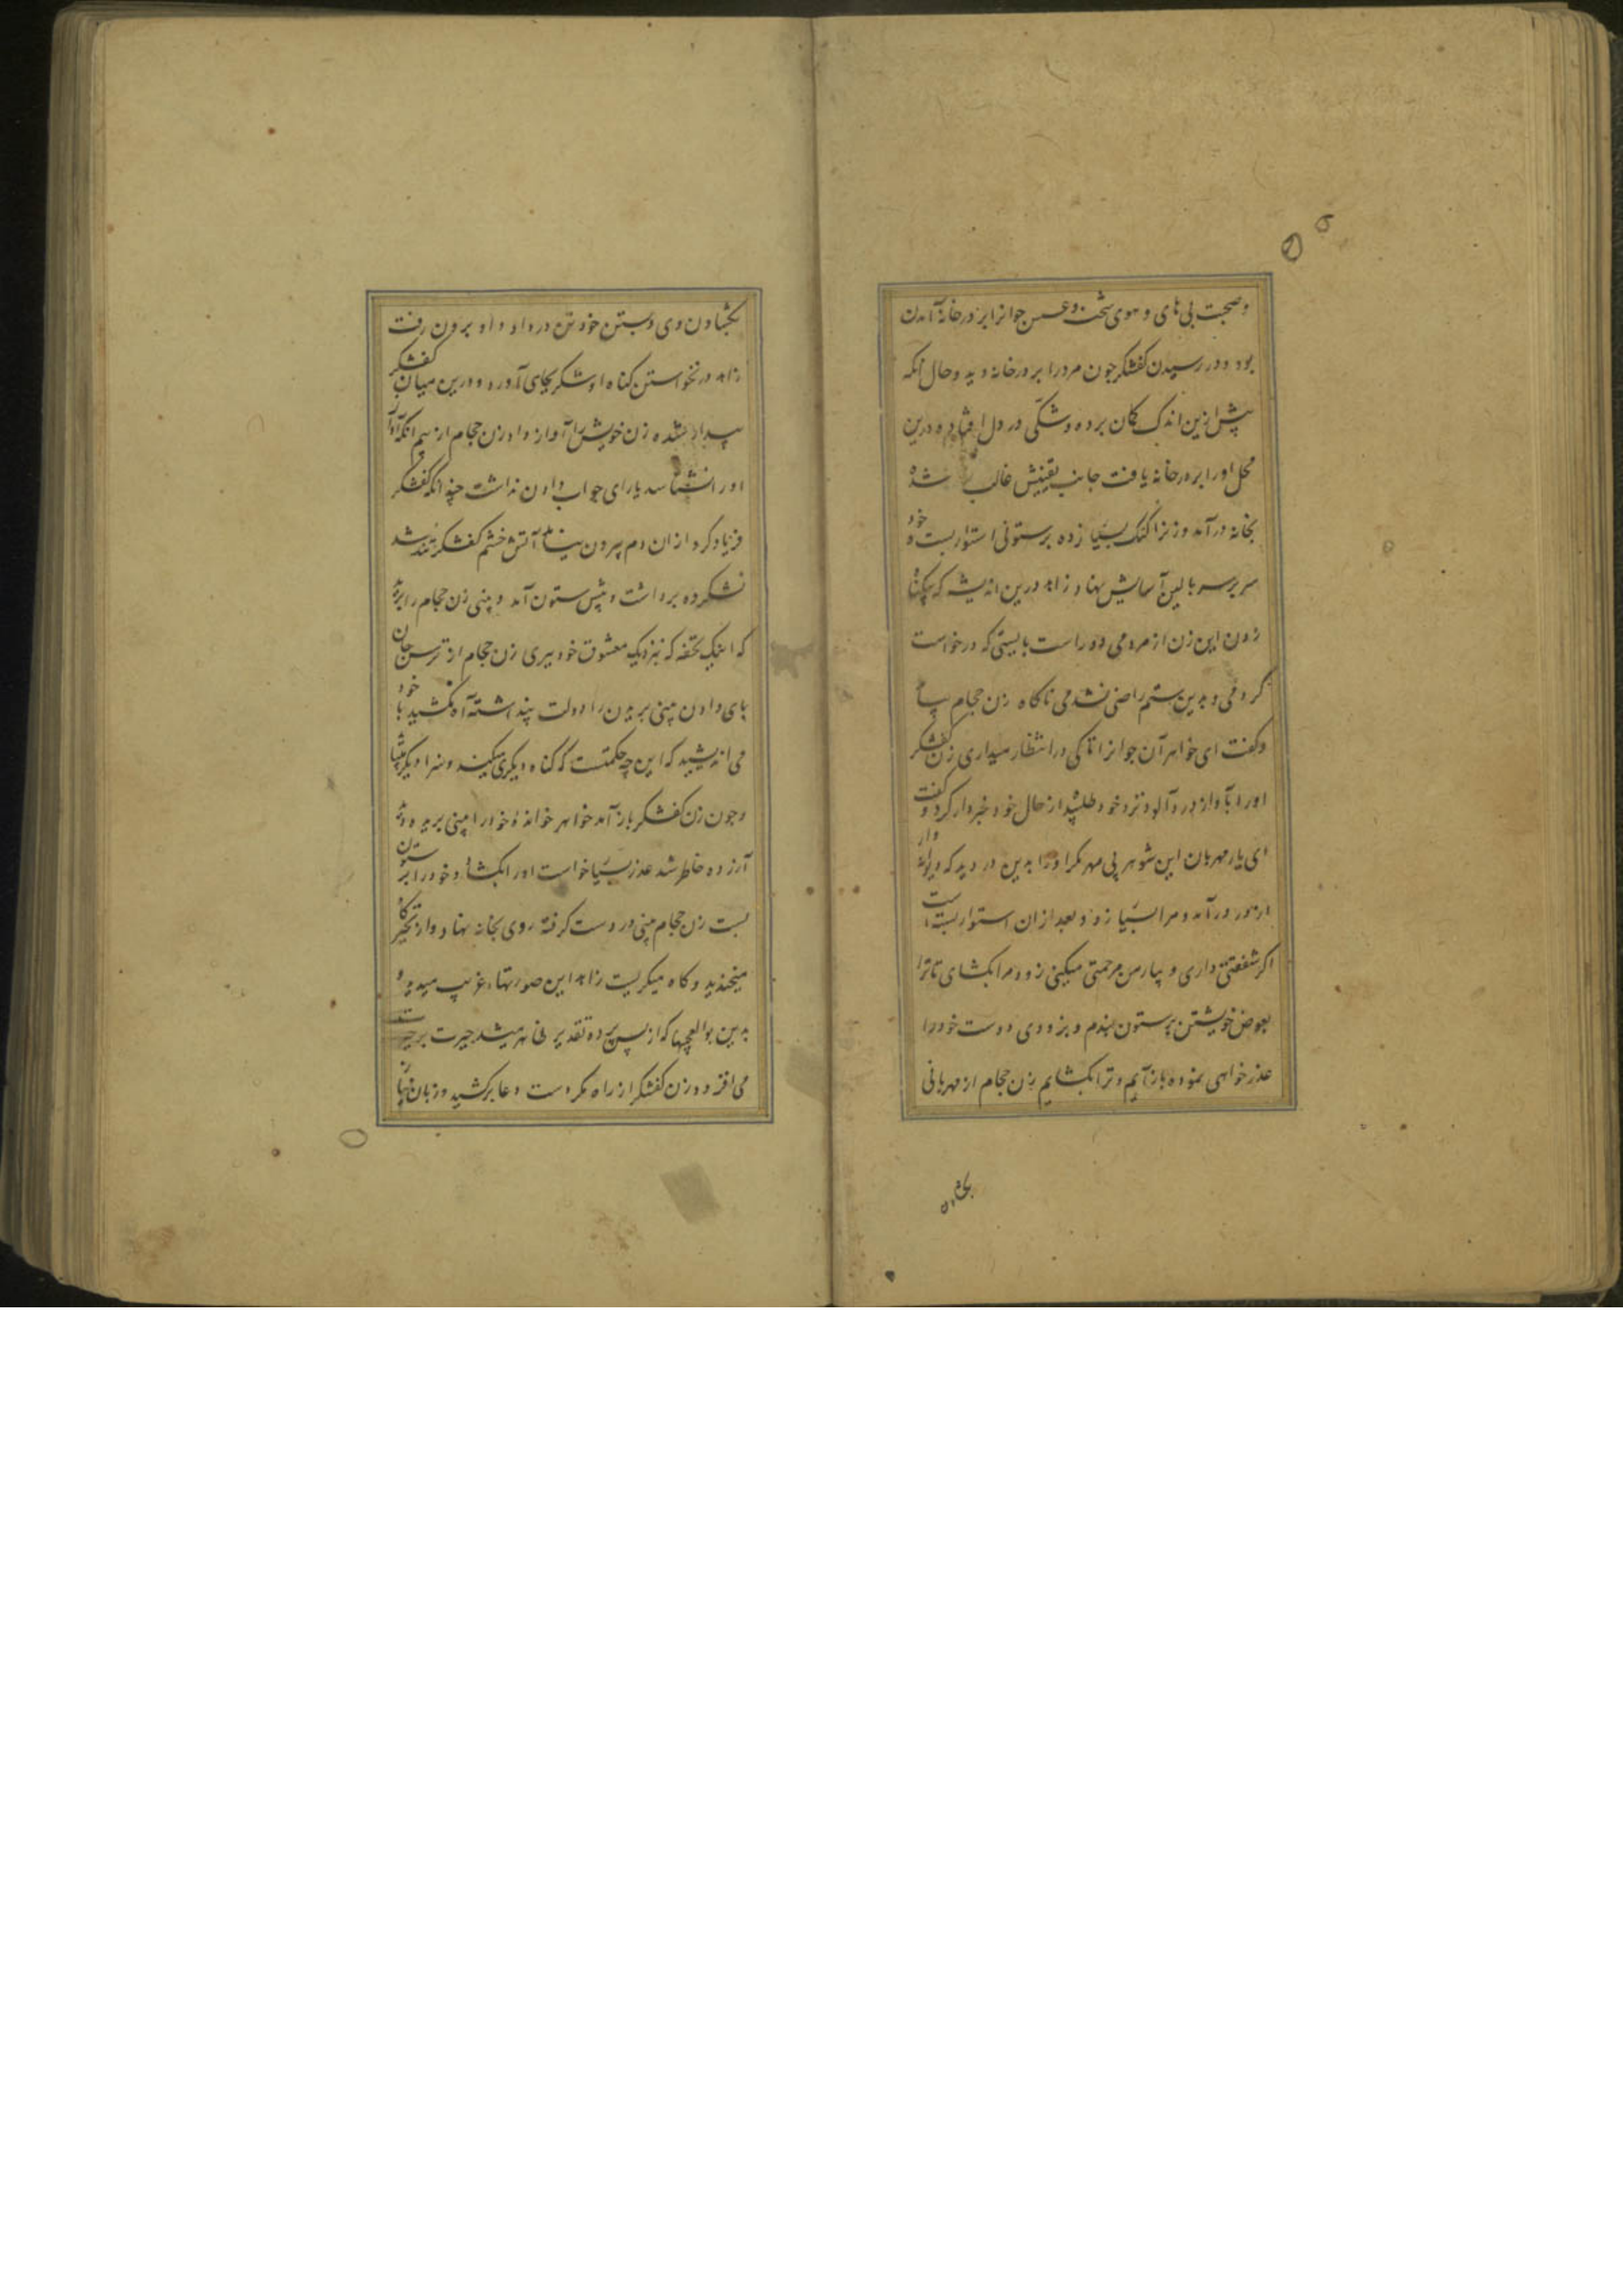 و صحبت بی های و هوی شحنه و عسس جوانرا بر در خانه آمدن
بود و در رسیدن کفشکر چون مرد را بر در خانه دید و حال آنکه
پیش ازین اندک کمان برده و شکی در دل افتاده درین
محل او را بر در خانه یافت جانب یقینش غالب شده
بخانه درآمد و زنرا کتک بسیار زده بر ستونی استوار بست و خود
سر بر سر بالین آسایش نهاد زاهد درین اندیشه که بیکناه
زدن این زن از مردمی دور است بایستی که درخواست
کردمی و بدین ستم راضی نشدمی ناکاه زن حجام بیامد
و کفت ای خواهر آن جوانرا تا کی در انتظار میداری زن کفشکر
او را بآواز دردآلود نزد خود طلبید از حال خود خبردار کرد و کفت
ای یار مهربان این شوهر بی مهر مکر او را بدین در دید که دیوانه وار
از در درآمد و مرا بسیار زد و بعد از آن استوار بسته است
اکر شفقتی داری و بیار من مرحمتی میکنی زود مرا بکشای تا ترا
بعوض خویشتن بر ستون بندم و بزودی دوست خود را
عذرخواهی نموده باز آیم و ترا بکشایم زن حجام از مهربانی
بکشادن
بکشادن وی و بستن خود تن در داد و او برون رفت
زاهد در نخواستن کناه او شکر بجای آورد و درین میان کفشکر
بیدار شده زن خویش را آواز داد زن حجام از بیم آنکه آواز
او را نشناسد یارای جواب دادن نداشت چندانکه کفشکر
فریاد کرد از آن دم بیرون نیامد آتش خشم کفشکر تند شد
نشکرده برداشت و پیش ستون آمد و بینی زن حجام را برید
که اینک تحفه که نزدیک معشوق خود ببری زن حجام از ترس جان
بای دادن بینی بریدن را دولت پنداشته آه نکشید با خود
می اندیشید که این چه حکمتست که کناه دیکری میکند و سزا دیکر
و چون زن کفشکر باز آمد خواهر خوانده خود را بینی بریده دید
آزرده خاطر شد عذر بسیار خواست او را بکشاد و خود را بر ستون
بست زن حجام بینی در دست کرفته روی بخانه نهاد و از تحیر کاه
میخندید و کاه میکریست زاهد این صورتها غریب میدید و
بدین بوالعجبها که از پس پرده تقدیر ظاهر میشد حیرت بر حیرت
می افزود و زن کفشکر از راه مکر دست دعا برکشید و زبان نیاز